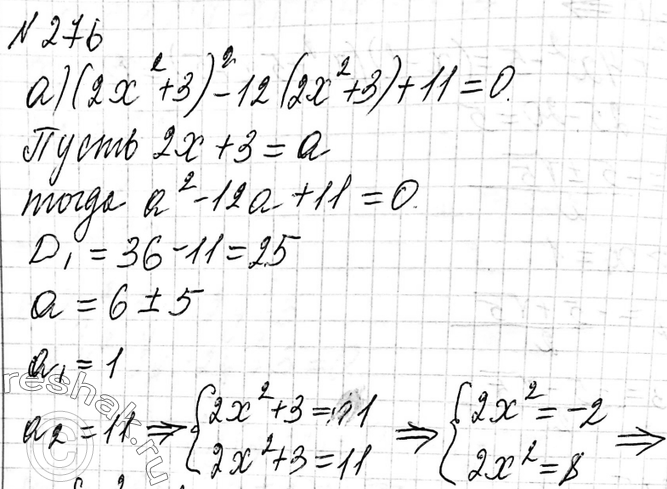 N 276
а) (2x²+3)²-12(2x²+3)+11=0.
Пусть 2x+3=a
тогда a²-12a+11=0.
D₁=36-11=25
a=6±5
a₁=1
a₂=11 ⇒ { 2x²+3=1 ⇒ { 2x²=-2 ⇒
2x²+3=11 2x²=8